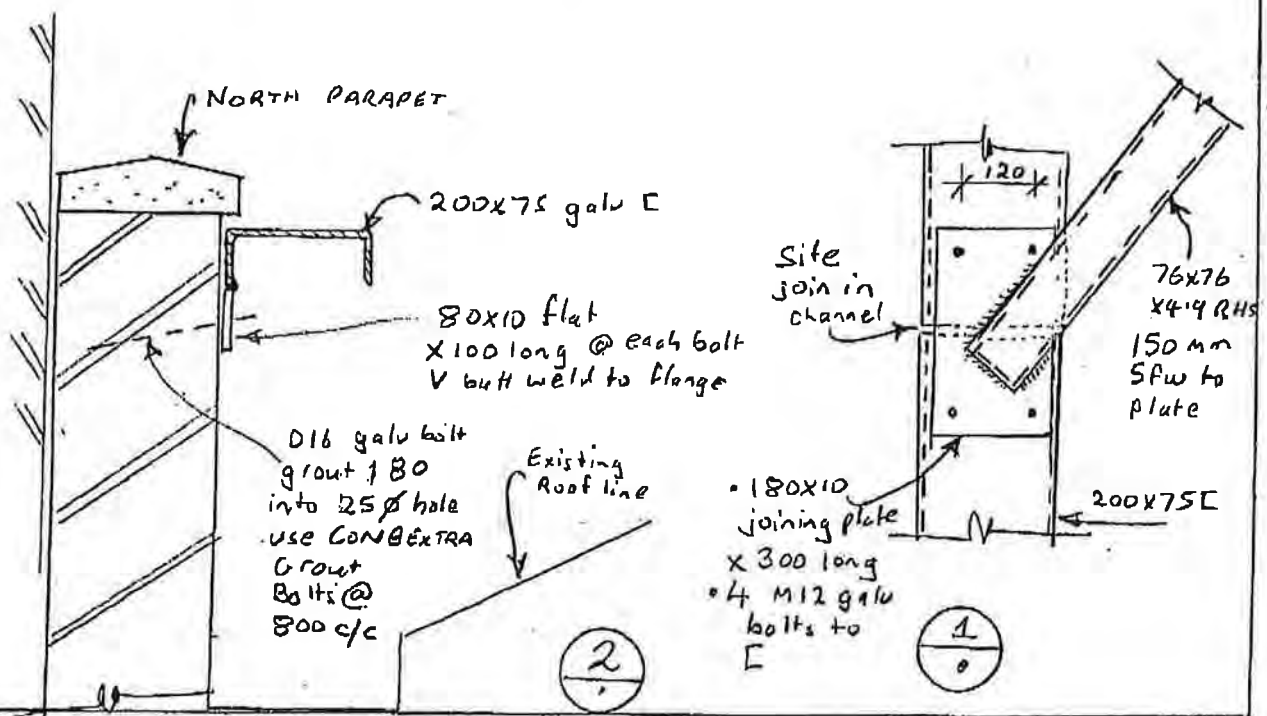 NORTH PARAPET
200x75 galv [
80x10 flat
x100 long @ each bolt
V butt weld to flange
D16 galv bolt
grout 180
into 25φ hole
use CONBEXTRA
Grout
Bolts @
800 c/c
Existing
Roof line
2
120
Site
join in
channel
76x76
x4.9 RHS
150 mm
5fw to
plate
• 180x10
joining plate
x 300 long
• 4 M12 galv
bolts to
[
200x75[
1